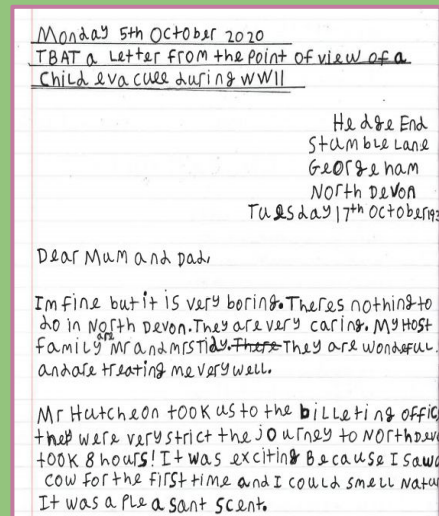 Monday 5th October 2020
TBAT a Letter from the point of view of a
Child evacuee during WWII
Hedge End
Stumble Lane
Georgeham
North Devon
Tuesday 17th October 193
Dear Mum and Dad,
Im fine but it is very boring. Theres nothing to
do in North Devon. They are very caring. My Host
family are Mr and Mrs Tidy. There They are wondeful.
and are treating me very well.
Mr Hutcheon took us to the billeting offic
they were very strict the journey to North Deve
took 8 hours! It was exciting Because I saw a
cow for the first time and I could smell Natu
It was a pleasant scent.